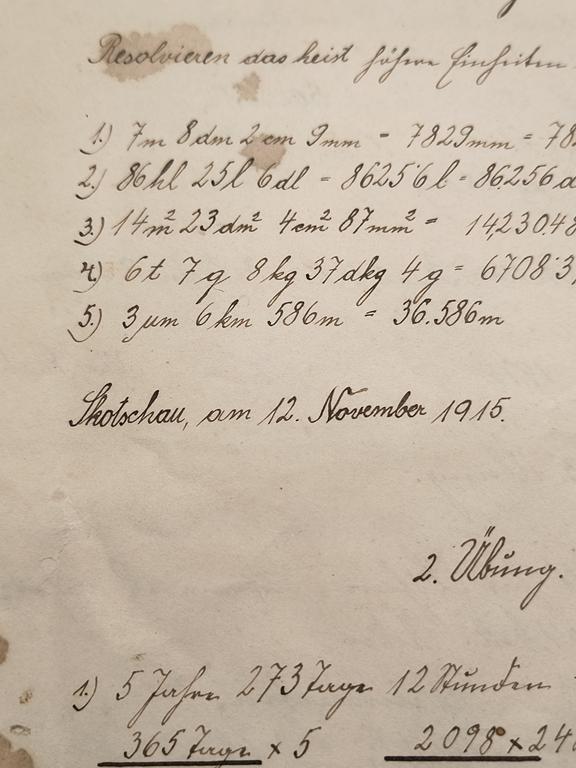 Resolvieren das heist höhere Einheiten
1.) 7m 8dm 2cm 9mm = 7829mm = 78
2.) 86hl 25l 6dl = 86256l = 86.256d
3.) 14m² 23dm² 4cm² 87mm² = 14,23048
4.) 6t 7q 8kg 37dkg 4g = 67083
5.) 3μm 6km 586m = 36.586m
Skotschau, am 12. November 1915.
2. Übung.
1.) 5 Jahre 273 Tage 12 Stunden
365 Tage × 5 2098 × 24